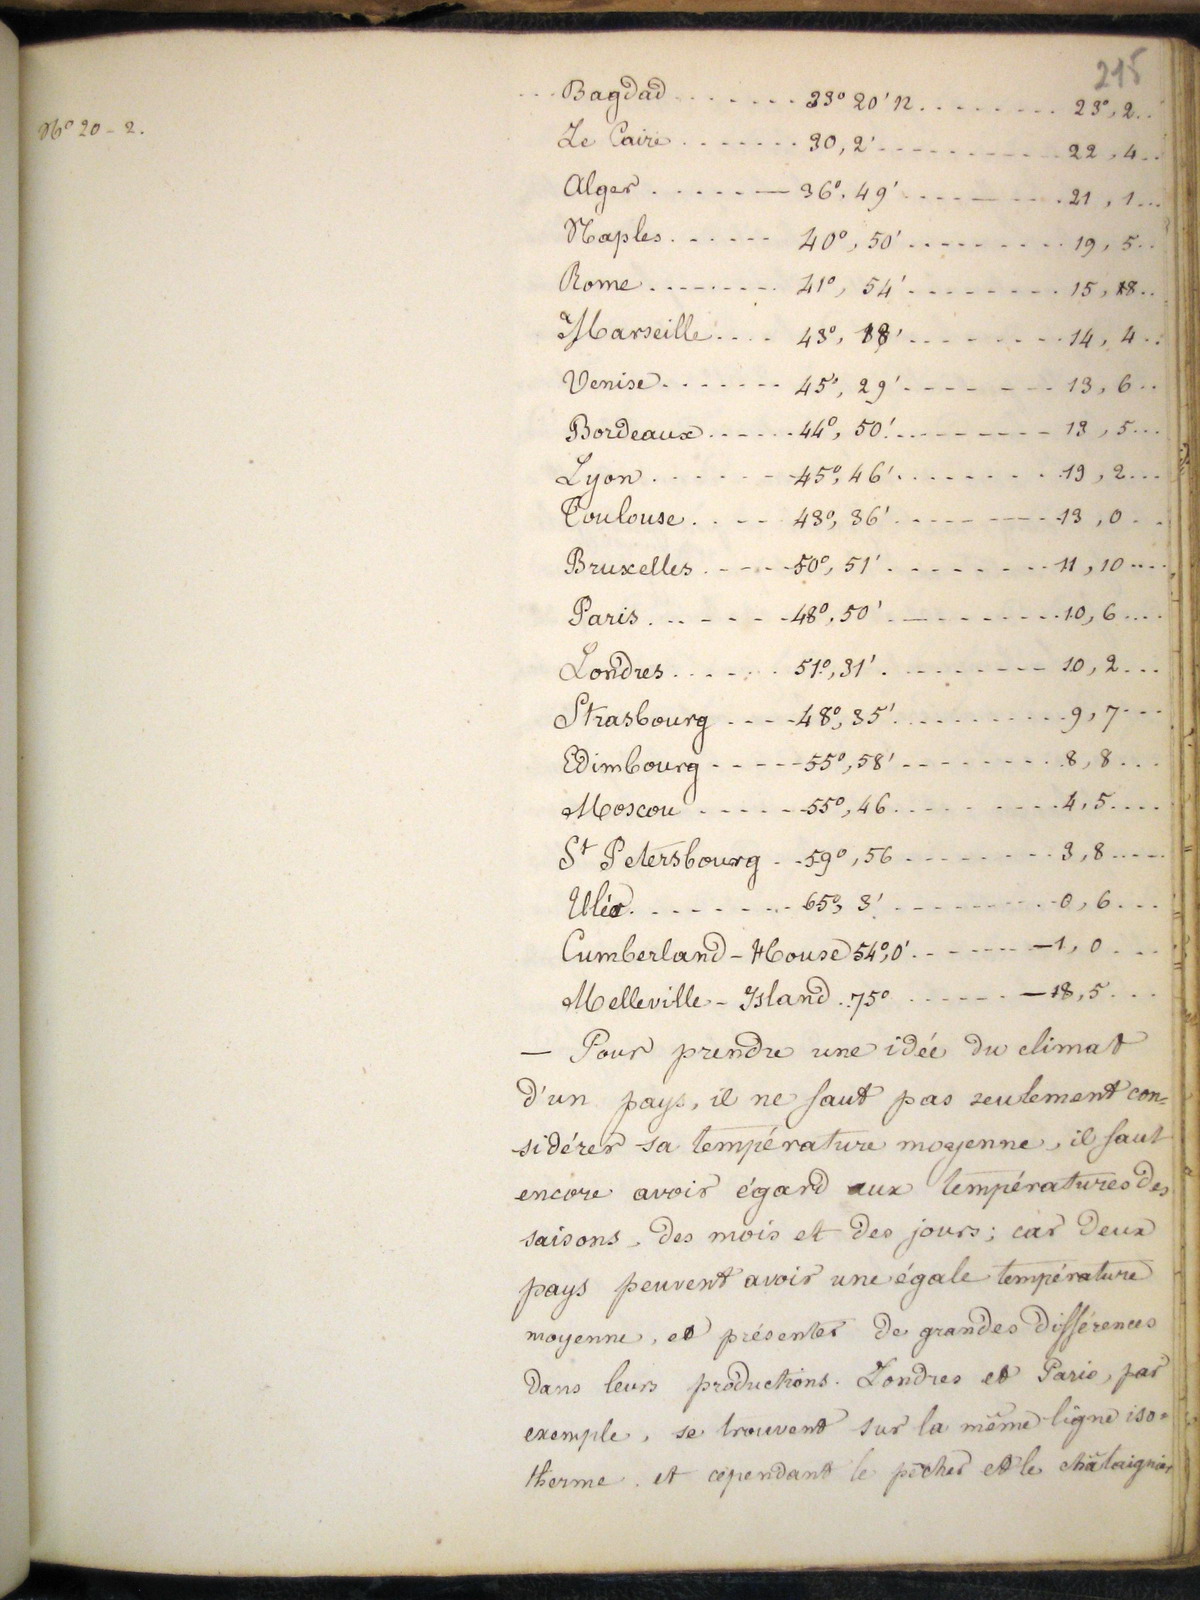 215
Nº 20 - 2.
Bagdad ....... 33° 20' N ......... 23°, 2..
Le Caire ....... 30, 2' ......... 22, 4..
Alger ....... 36°. 49' ......... 21, 1...
Naples ...... 40°, 50' ......... 19, 5..
Rome ....... 41°, 54' ......... 15, 8..
Marseille .... 43°, 18' ......... 14, 4..
Venise ....... 45°, 29' ......... 13, 6..
Bordeaux ...... 44°, 50' ......... 13, 5...
Lyon ....... 45°, 46' ......... 13, 2...
Toulouse .... 43°, 36' ......... 13, 0..
Bruxelles ..... 50°, 51' ......... 11, 10....
Paris ...... 48°, 50' ......... 10, 6....
Londres ...... 51°, 31' ......... 10, 2...
Strasbourg .... 48°, 35' ......... 9, 7...
Edimbourg ..... 55°, 58' ......... 8, 8...
Moscou ..... 55°, 46 ......... 4, 5....
St Petersbourg .. 59°, 56 ......... 3, 8....
Uléo ........ 65°, 3' ......... 0, 6...
Cumberland - House 54°, 0' ...... -1, 0...
Melleville - Island .. 75° ...... -18, 5...
— Pour prendre une idée du climat
d'un pays, il ne faut pas seulement con=
sidérer sa température moyenne, il faut
encore avoir égard aux températures des
saisons, des mois et des jours; car deux
pays peuvent avoir une égale température
moyenne, et présenter de grandes différences
dans leurs productions. Londres et Paris, par
exemple, se trouvent sur la même ligne iso=
therme. et cependant le pêcher et le châtaignier